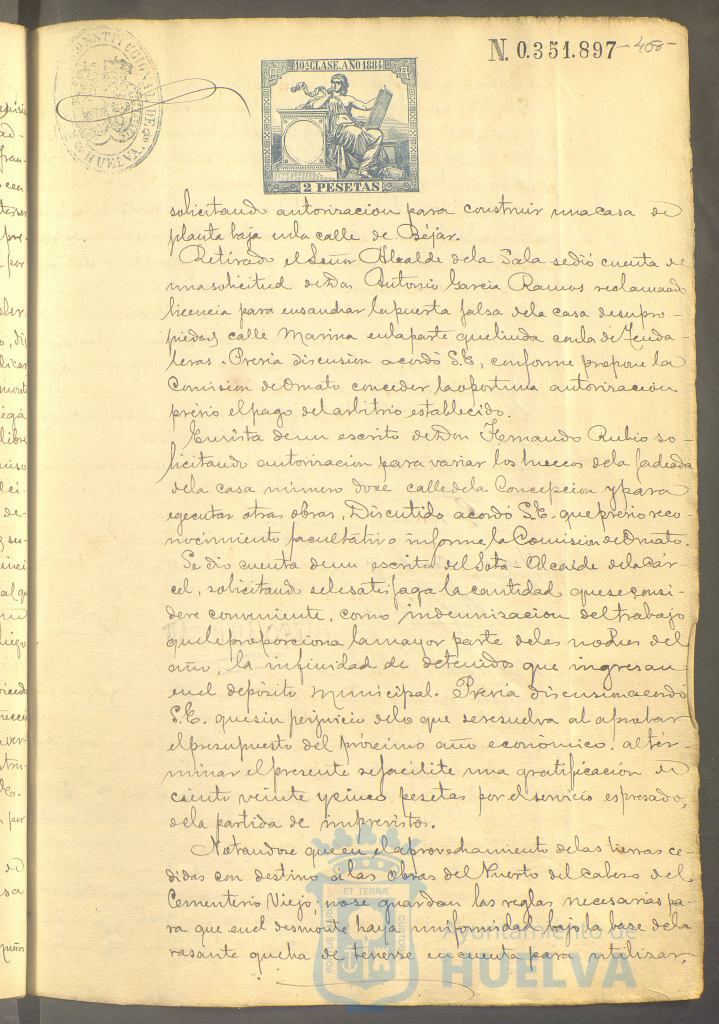 CONSTITUCIONAL DE
HUELVA
N. 0.351.897 -468-
10ª CLASE. AÑO 1884
2 PESETAS
solicitando autorizacion para construir una casa de
planta baja en la calle de Béjar.
Retirado el Señor Alcalde de la Sala se dió cuenta de
una solicitud de Don Antonio Garcia Ramos reclamando
licencia para ensanchar la puerta falsa de la casa de su pro-
piedad calle Marina en la parte que linda con la de Tenda-
leras. Previa discusion acordó S.E., conforme propone la
Comision de Ornato conceder la oportuna autorizacion
prévio el pago del arbitrio establecido.
En vista de un escrito de Don Fernando Rubio so-
licitando autorizacion para variar los huecos de la fachada
de la casa número doce calle de la Concepcion y para
egecutar otras obras. Discutido acordó S.E. que prévio reco-
nocimiento facultativo informe la Comision de Ornato.
Se dió cuenta de un escrito del Sota-Alcaide de la Cár-
cel, solicitando se le satisfaga la cantidad que se consi-
dere conveniente, como indemnizacion del trabajo
que le proporciona la mayor parte de las noches del
año, la infinidad de detenidos que ingresan
en el depósito Municipal. Prévia discusion acordó
S.E. que sin perjuicio de lo que se resuelva al aprobar
el presupuesto del próximo año económico, al tér-
minar el presente se facilite una gratificación de
ciento veinte y cinco pesetas por el servicio espresado,
de la partida de imprevistos.
Notandose que en el aprovechamiento de las tierras ce-
didas con destino á las obras del Puerto del cabezo del
Cementerio Viejo, no se guardan las reglas necesarias pa-
ra que en el desmonte haya uniformidad bajo la base de la
rasante que ha de tenerse en cuenta para utilizar,
Ayuntamiento de
HUELVA